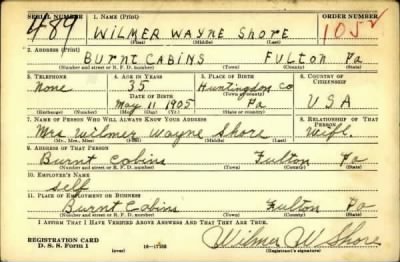 SERIAL NUMBER 1. NAME (Print) ORDER NUMBER
489 WILMER WAYNE SHORE 1052
(First) (Middle) (Last)
2. ADDRESS (Print)
BURNT CABINS FULTON Pa
(Number and street or R. F. D. number) (Town) (County) (State)
3. TELEPHONE 4. AGE IN YEARS 5. PLACE OF BIRTH 6. COUNTRY OF CITIZENSHIP
None 35 Huntingdon Co
DATE OF BIRTH (Town or county)
May 11 1905 Pa USA
(Exchange) (Number) (Mo.) (Day) (Yr.) (State or country)
7. NAME OF PERSON WHO WILL ALWAYS KNOW YOUR ADDRESS 8. RELATIONSHIP OF THAT PERSON
Mrs Wilmer Wayne Shore Wife.
(Mr., Mrs., Miss) (First) (Middle) (Last)
9. ADDRESS OF THAT PERSON
Burnt Cabins Fulton Pa
(Number and street or R. F. D. number) (Town) (County) (State)
10. EMPLOYER'S NAME
Self
11. PLACE OF EMPLOYMENT OR BUSINESS
Burnt Cabins Fulton Pa
(Number and street or R. F. D. number) (Town) (County) (State)
I AFFIRM THAT I HAVE VERIFIED ABOVE ANSWERS AND THAT THEY ARE TRUE.
REGISTRATION CARD Wilmer W Shore
D. S. S. Form 1 (over) (Registrant's signature)